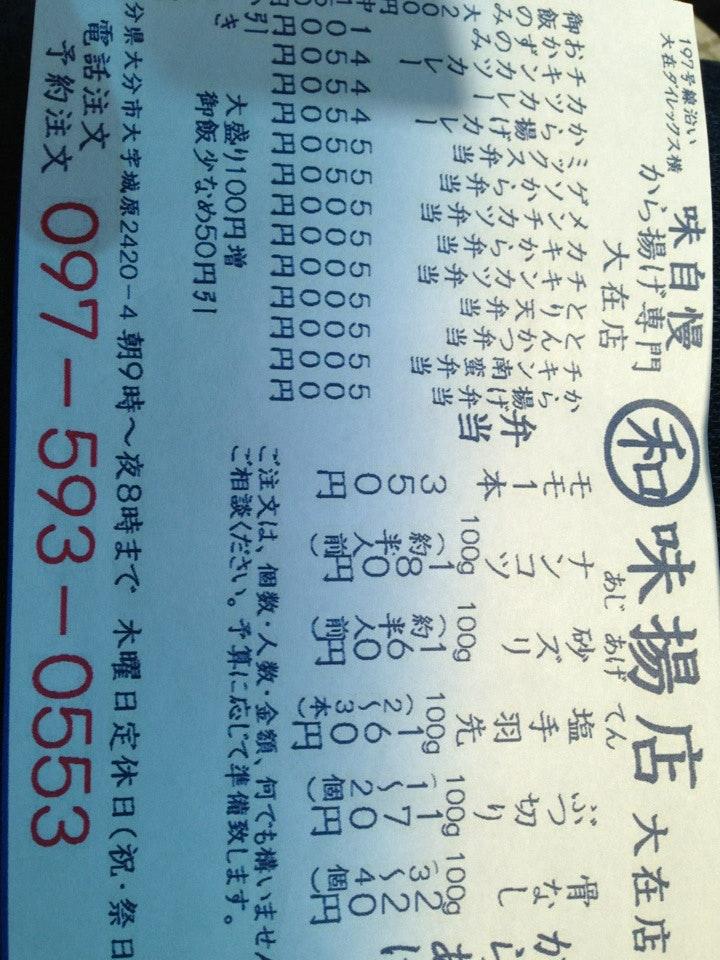 197号線沿い
大在ダイレックス横
味自慢
から揚げ専門
大在店
和
あじ あげ てん
味揚店 大在店
骨なし 100g 220円 (3〜4個)
ぶつ切り 100g 170円 (1〜2個)
塩手羽先 100g 160円 (2〜3本)
砂ズリ 100g 160円 (約半人前)
ナンコツ 100g 180円 (約半人前)
モモ1本 350円
弁当
から揚げ弁当 500円
チキン南蛮弁当 500円
とんかつ弁当 500円
とり天弁当 500円
チキンカツ弁当 500円
カキから弁当 500円
メンチカツ弁当 500円
ゲソから弁当 500円
ミックス弁当 500円
から揚げカレー 450円
カツカレー 450円
チキンカツカレー 450円
おかずのみ 100円引き
御飯のみ 大200円
大盛り100円増
御飯少なめ50円引
ご注文は、個数・人数・金額、何でも構いません
ご相談ください。予算に応じて準備致します。
分県大分市大字城原2420-4 朝9時〜夜8時まで 木曜日定休日(祝・祭日
電話注文
予約注文
097-593-0553